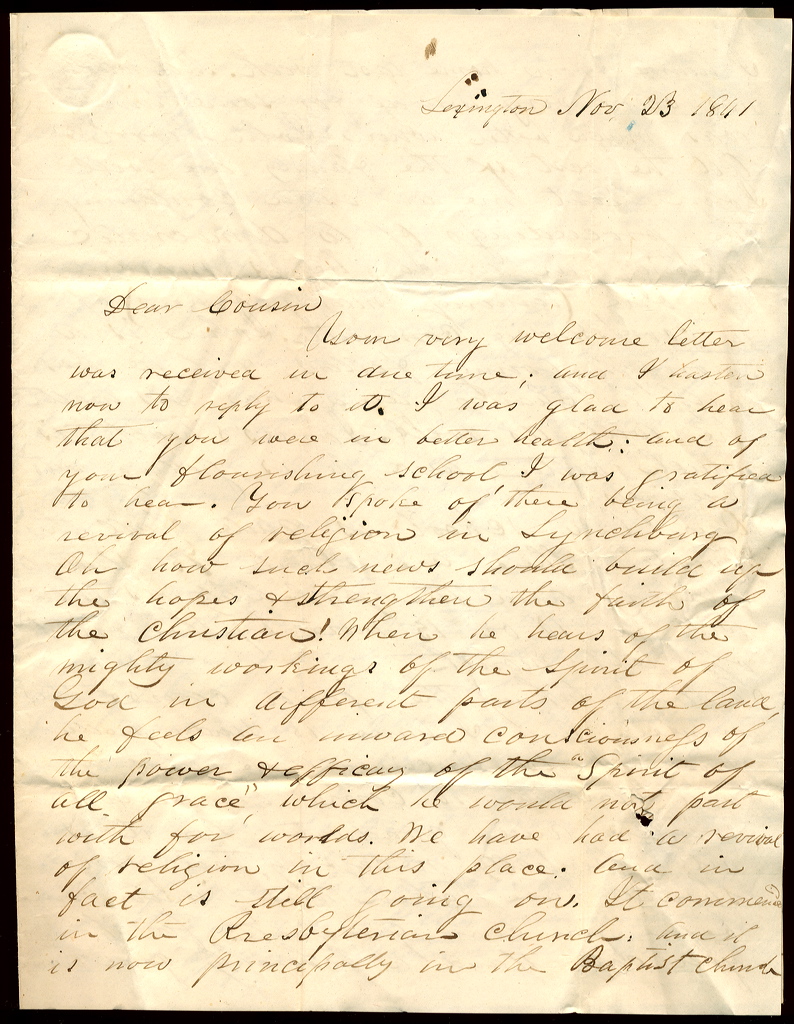 Lexington Nov, 23 1841
Dear Cousin
Your very welcome letter
was received in due time; and I hasten
now to reply to it. I was glad to hear
that you were in better health: and of
your flourishing school, I was gratified
to hear. You spoke of there being a
revival of religion in Lynchburg
Oh how such news should build up
the hopes & strengthen the faith of
the Christian! When he hears of the
mighty workings of the Spirit of
God in different parts of the land,
he feels an inward consciousness of
the power & efficacy of the "Spirit of
all grace", which he would not part
with for worlds. We have had a revival
of religion in this place. and in
fact is still going on. It commenced
in the Presbyterian Church: and it
is now principally in the Baptist church